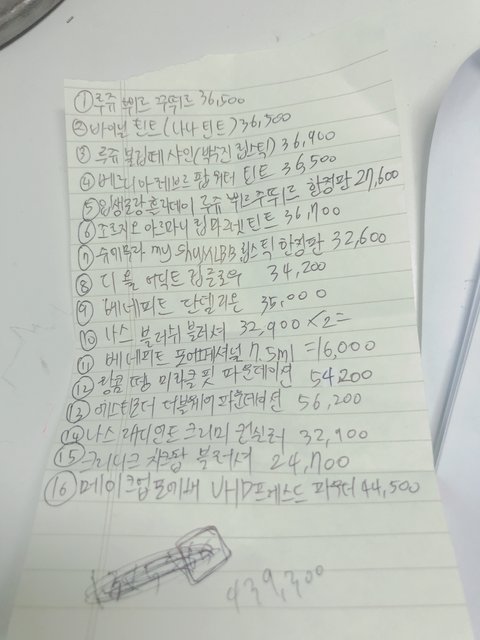 ① 루쥬 쀠르 꾸뛰르 36,500
② 바이닐 틴트 (나나 틴트) 36,500
③ 루쥬 볼립떼 샤인 (박수진 립스틱) 36,900
④ 베르니 아 레브르 팝 워터 틴트 36,500
⑤ 입생로랑 홀리데이 루쥬 쀠르 꾸뛰르 한정판 27,600
⑥ 조르지오 아르마니 립 마그넷 틴트 36,700
⑦ 슈에무라 my ShuMLBB 립스틱 한정판 32,600
⑧ 디올 어딕트 립글로우 34,200
⑨ 베네피트 단델리온 35,000
⑩ 나스 블러쉬 블러셔 32,900 ×2=
⑪ 베네피트 포어페셔널 7.5ml =16,000
⑫ 랑콤 땡 미라클 핏 파운데이션 54200
⑬ 에스티로더 더블웨어 파운데이션 56,200
⑭ 나스 래디언트 크리미 컨실러 32,900
⑮ 크리니크 치크팝 블러셔 24,700
⑯ 메이크업포에버 UHD프레스드 파우더 44,500
439,300